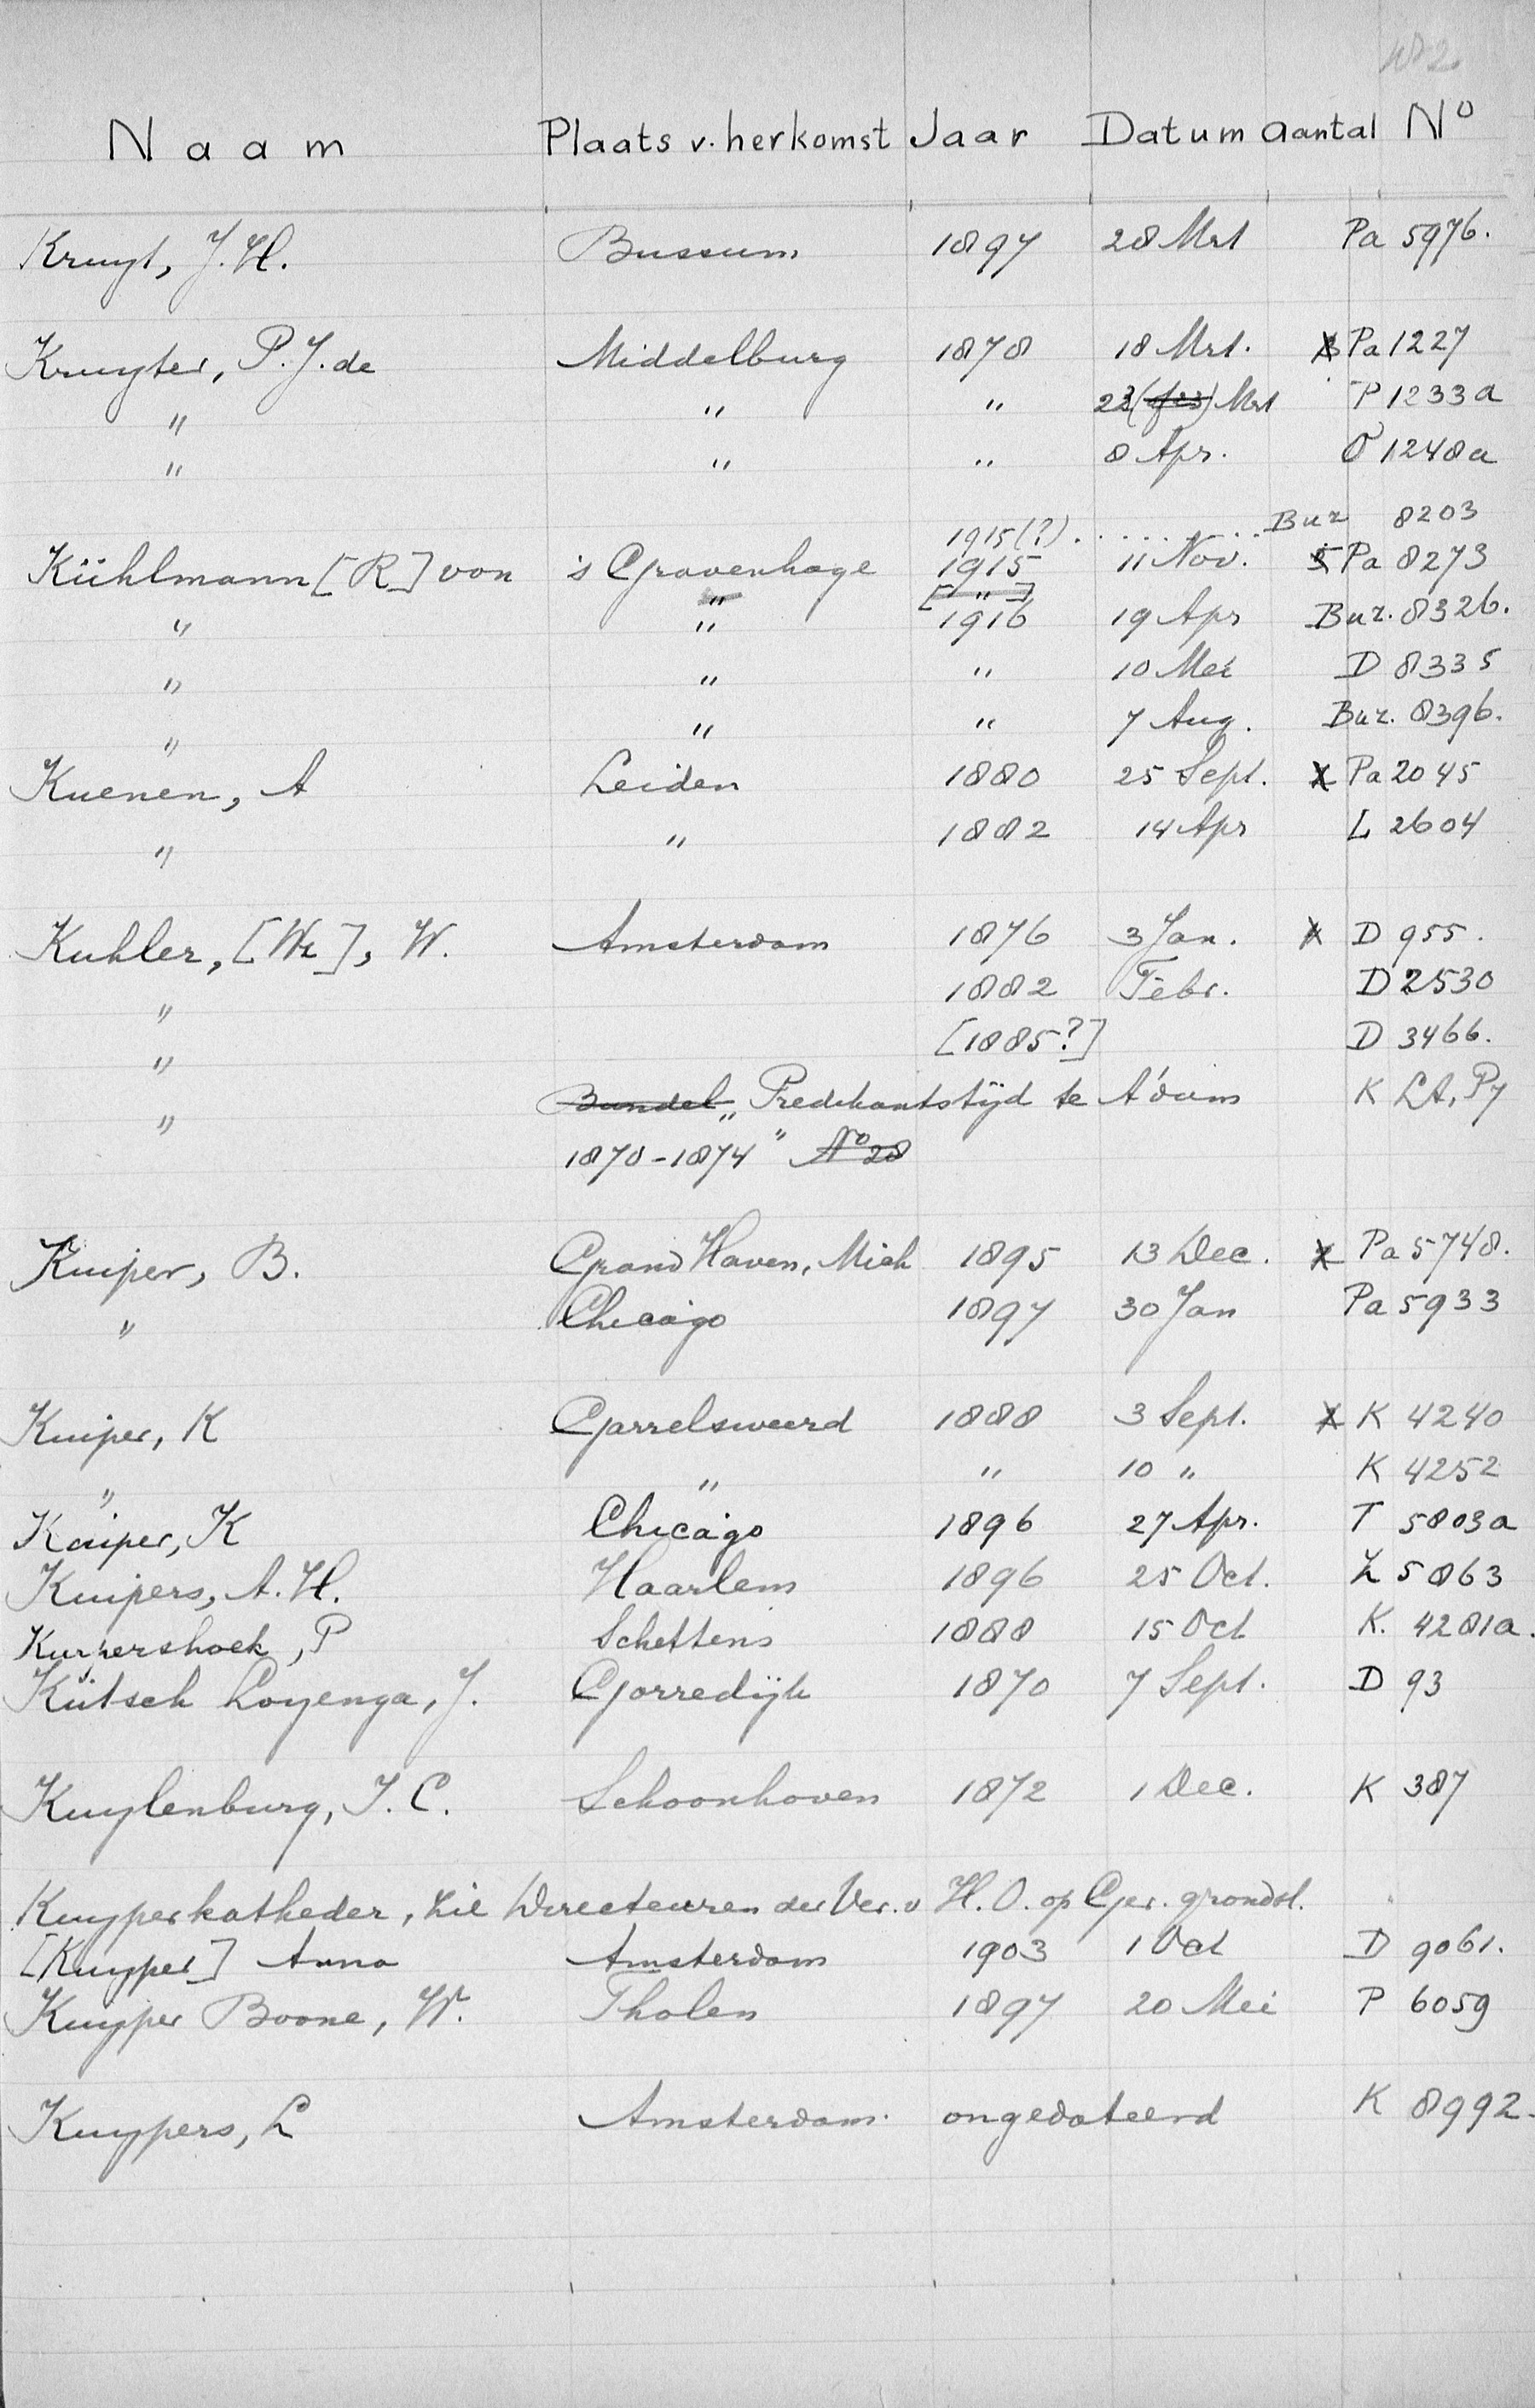 Naam Plaats v. herkomst Jaar Datum aantal No
Kruyt, J. H. Bussum 1897 28 Mrt Pa 5976.
Kruyter, P. J. de Middelburg 1878 18 Mrt. Pa 1227
" " " 23 Mrt P 1233a
" " " 8 Apr. 1248a
1915(?) . . . . . . . . Bur 8203
Kühlmann [R] von 's Gravenhage 1915 11 Nov. 5 Pa 8273
" [ " ]
" " 1916 19 Apr Bur. 8326.
" " " 10 Mei D 8335
" " " 7 Aug. Bur. 8396.
Kuenen, A Leiden 1880 25 Sept. Pa 2045
" " 1882 14 Apr L 2604
Kuhler, [Wz], W. Amsterdam 1876 3 Jan. D 955.
" 1882 Febr. D 2530
" [1885?] D 3466.
" Bundel „Predikantstijd te A'dam K LA, P7
1870-1874" No 28
Kuiper, B. Grand Haven, Mich 1895 13 Dec. Pa 5748.
" Chicago 1897 30 Jan Pa 5933
Kuiper, K Garrelsweerd 1888 3 Sept. K 4240
" " " 10 " K 4252
Kuiper, K Chicago 1896 27 Apr. T 5803a
Kuipers, A. H. Haarlem 1896 25 Oct. Z 5863
Kuipershoek, P Schettens 1888 15 Oct K. 4281a.
Kütsch Loyenga, J. Gorredijk 1870 7 Sept. D 93
Kuylenburg, J. C. Schoonhoven 1872 1 Dec. K 387
Kuyperkatheder, zie Directeuren der Ver. v H. O. op Ger. grondsl.
[Kuyper] Anna Amsterdam 1903 1 Oct D 9061.
Kuyper Boone, W. Tholen 1897 20 Mei P 6059
Kuypers, L Amsterdam. ongedateerd K 8992.